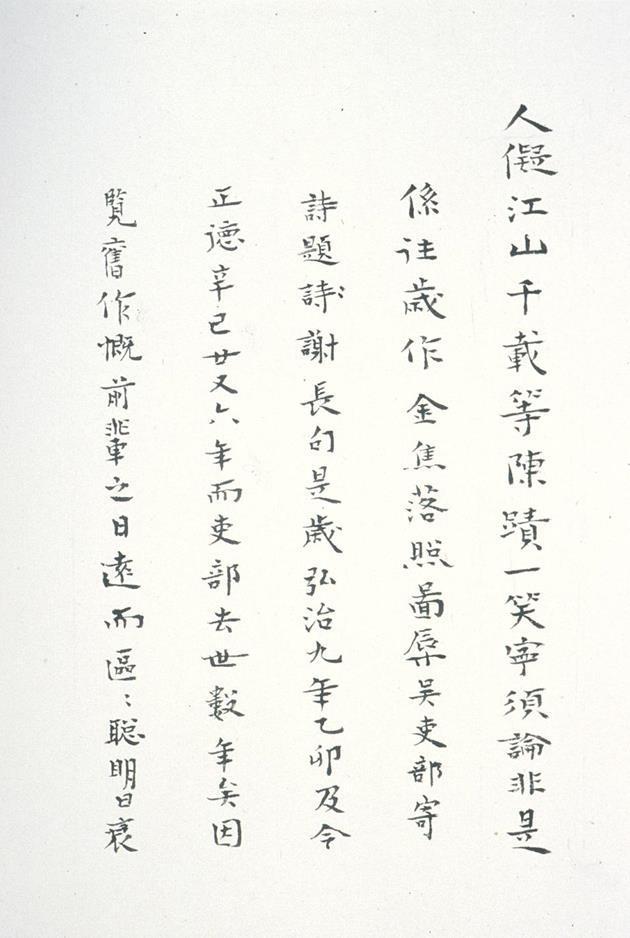 人儗江山千載等陳蹟一笑寧須論非是
係往歲作金焦落照圖辱吳吏部寄
詩題詩〻謝長句是歲弘治九年乙卯及今
正德辛巳廿又六年而吏部去世數年矣因
覧舊作慨前輩之日遠而區〻聰明日衰